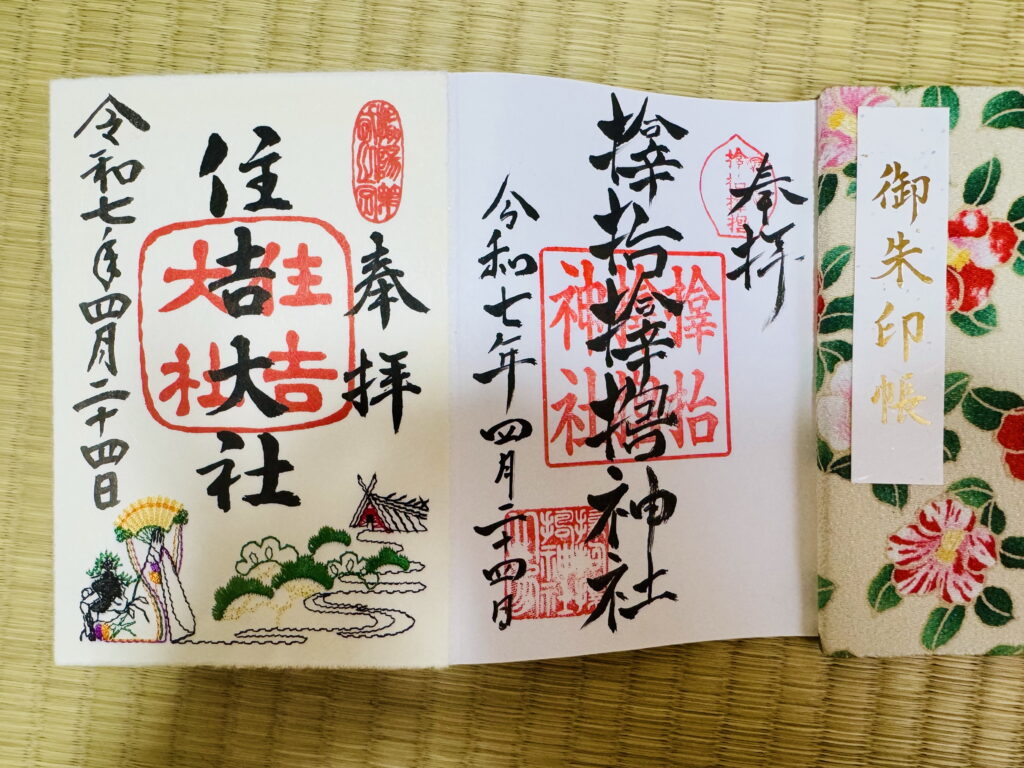 御朱印帳
奉拝
𪮷抬𪮷𪮇神社
𪮷抬
𪮷𪮇
神社
令和七年四月二十四日
奉拝
住吉大社
住吉
大社
令和七年四月二十四日